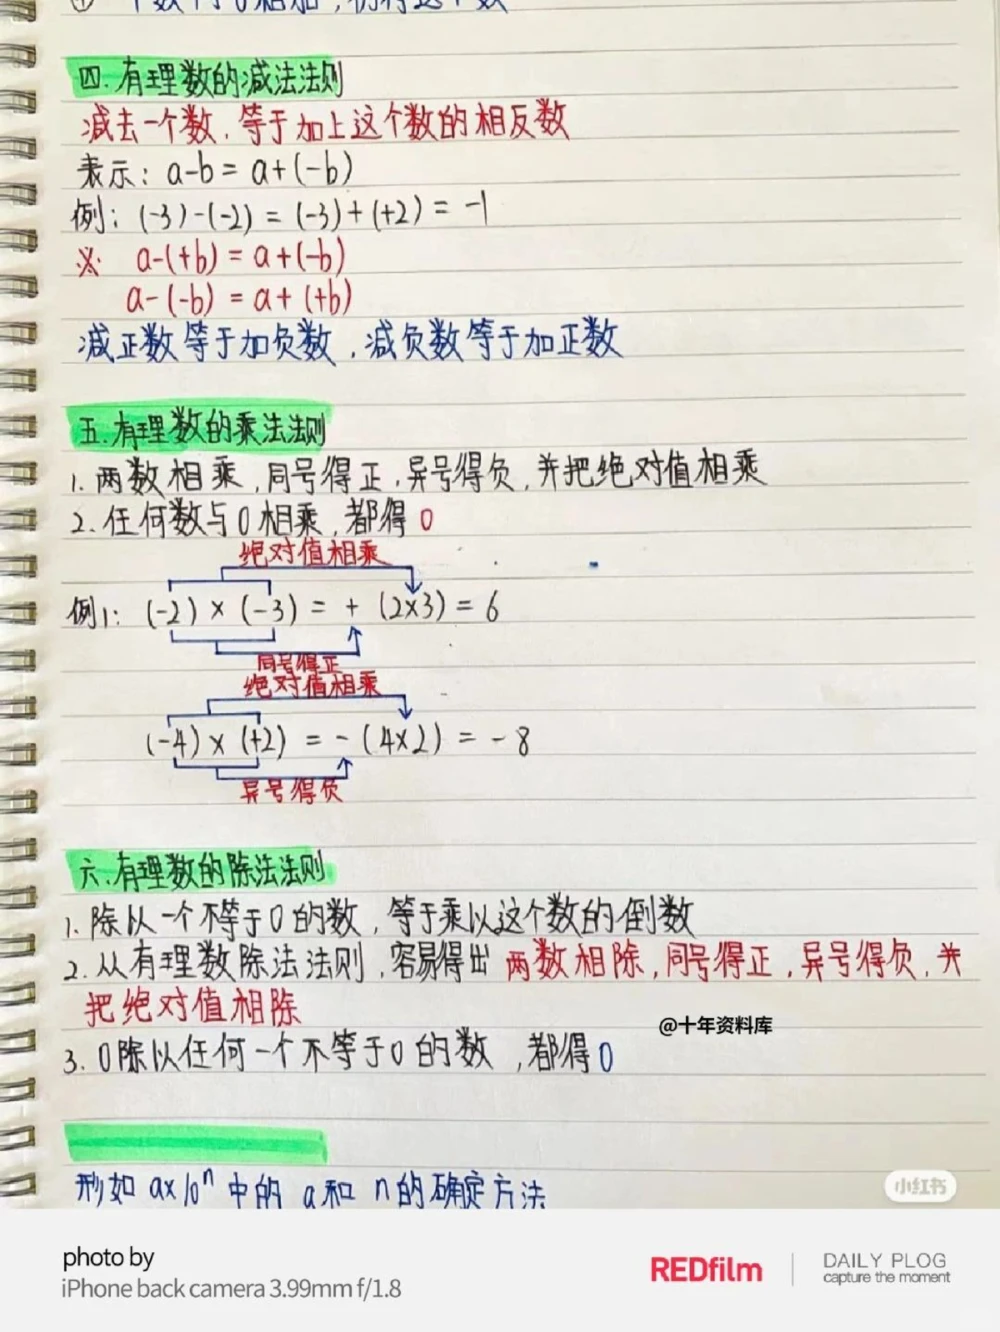 四.有理数的减法法则
减去一个数,等于加上这个数的相反数
表示: a-b = a+(-b)
例: (-3)-(-2) = (-3)+(+2) = -1
※ a-(+b) = a+(-b)
a-(-b) = a+(+b)
减正数等于加负数,减负数等于加正数
五.有理数的乘法法则
1.两数相乘,同号得正,异号得负,并把绝对值相乘
2.任何数与0相乘,都得0
绝对值相乘
例1: (-2)×(-3) = + (2×3) = 6
同号得正
绝对值相乘
(-4)×(+2) = -(4×2) = -8
异号得负
六.有理数的除法法则
1.除以一个不等于0的数,等于乘以这个数的倒数
2.从有理数除法法则,容易得出两数相除,同号得正,异号得负,并
把绝对值相除
@十年资料库
3.0除以任何一个不等于0的数,都得0
形如 a×10ⁿ 中的 a和 n的确定方法
小红书
photo by
iPhone back camera 3.99mm f/1.8
REDfilm
DAILY PLOG
capture the moment